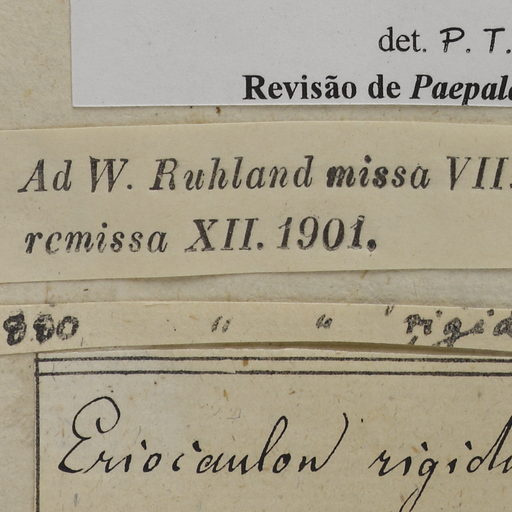 det. P. T.
Revisão de Paepal
Ad W. Ruhland missa VII.
remissa XII. 1901.
880 " " rigid
Eriocaulon rigid